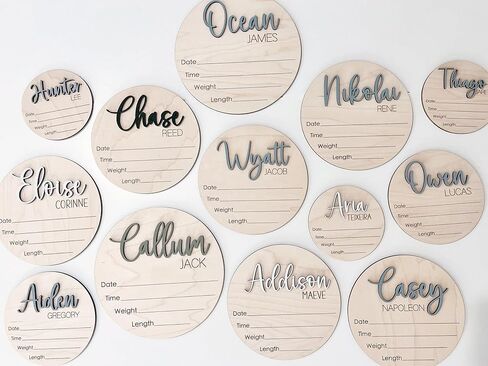 Ocean
JAMES
Date
Time
Weight
Length
Hunter
LEE
Date
Time
Weight
Length
Chase
REED
Date
Time
Weight
Length
Nikolai
RENE
Date
Time
Weight
Length
Thiago
Date
Time
Weight
Length
Eloise
CORINNE
Date
Time
Weight
Length
Wyatt
JACOB
Date
Time
Weight
Length
Aria
TEIXEIRA
Date
Time
Weight
Length
Owen
LUCAS
Date
Time
Weight
Length
Aiden
GREGORY
Date
Time
Weight
Length
Callum
JACK
Date
Time
Weight
Length
Addison
MAEVE
Date
Time
Weight
Length
Casey
NAPOLEON
Date
Time
Weight
Length